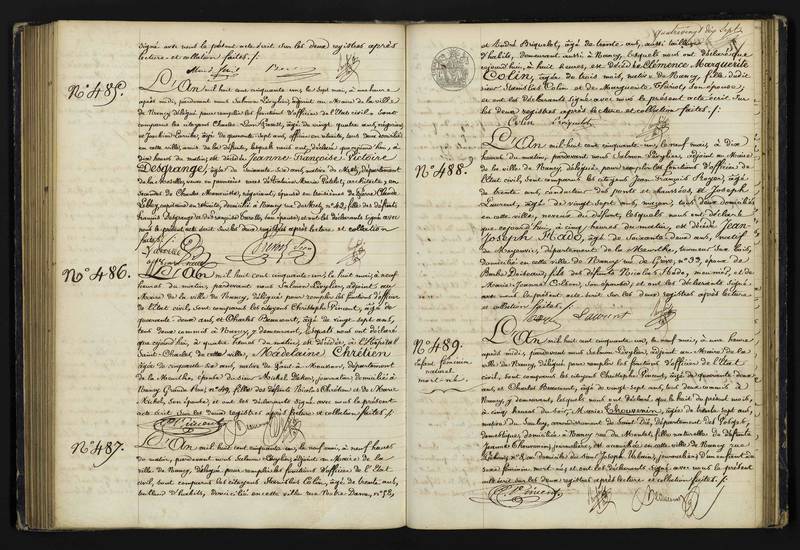 signé avec nous le présent acte écrit sur les deux registres après
lecture et collation faites ./.
N.° 485.
L'An mil huit cent cinquante un, le sept mai, à une heure
après midi, pardevant nous Salmon Lévylier, adjoint au Maire de la ville
de Nancy, délégué pour remplir les fonctions d'officier de l'Etat civil, sont
comparus les citoyens
âgé de vingt quatre ans, négociant
âgé de quarante sept ans, officier en retraite, tous deux domiciliés
en cette ville, amis de la défunte, lesquels nous ont déclaré que cejourd'hui, à
dix heures du matin, est décédée Jeanne Françoise Victoire
Desgrange, âgée de soixante dix ans, native de Metz, département
de la Moselle, veuve en premières noces d'Antoine Marie
architecte, en
secondes de Charles
négociant, épouse en troisièmes de
Claude
capitaine en retraite, domiciliée à Nancy rue
n.° 42, fille des défunts
François Desgrange et de
son épouse; et ont les déclarants signé avec
nous le présent acte écrit sur les deux registres après lecture et collation
faites ./.
N.° 486.
L'An mil huit cent cinquante un, le huit mai, à neuf
heures du matin, pardevant nous Salmon Lévylier, adjoint au
Maire de la ville de Nancy, délégué pour remplir les fonctions d'officier
de l'Etat civil, sont comparus les citoyens Christophe Vincent, âgé de
quarante deux ans, et Charles Beaucourt, âgé de vingt sept ans,
tous deux commis à Nancy, y demeurant, lesquels nous ont déclaré
que cejourd'hui, à quatre heures du matin, est décédée, à l'Hôpital
Saint-Charles de cette ville, Madelaine Chrétien
âgée de cinquante
ans, native de
département
de la Meurthe, épouse du sieur Michel
journalier, domiciliée à
Nancy Grande Rue, n.°
fille des défunts Nicolas Chrétien et de Marie
Michel, son épouse; et ont les déclarants signé avec nous le présent
acte écrit sur les deux registres après lecture et collation faites ./.
N.° 487.
L'An mil huit cent cinquante un, le neuf mai, à neuf heures
du matin, pardevant nous Salmon Lévylier, adjoint au Maire de la
ville de Nancy, délégué pour remplir les fonctions d'officier de l'Etat
civil, sont comparus les citoyens Stanislas Colin, âgé de trente ans,
tailleur d'habits, domicilié en cette ville rue Notre Dame, n.° 58,
quatrevingt dix sept
et André Briquelot, âgé de trente ans, aussi tailleur
d'habits, demeurant aussi à Nancy, lesquels nous ont déclaré que
cejourd'hui, à huit heures, est décédée Clémence Marguerite
Colin, âgée de trois mois, native de Nancy, fille dudit
sieur Stanislas Colin et de Marguerite
son épouse;
et ont les déclarants signé avec nous le présent acte écrit sur
les deux registres après lecture et collation faites ./.
Colin Briquelot
N.° 488.
L'An mil huit cent cinquante un, le neuf mai, à dix
heures du matin, pardevant nous Salmon Lévylier, adjoint au Maire
de la ville de Nancy, délégué pour remplir les fonctions d'officier de
l'Etat civil, sont comparus les citoyens François
âgé
de trente ans, conducteur des ponts et chaussées, et Joseph
Laurent, âgé de vingt sept ans, maçon, tous deux domiciliés
en cette ville, neveux du défunt, lesquels nous ont déclaré
que cejourd'hui, à cinq heures du matin, est décédé Jean-
Joseph Hado, âgé de soixante deux ans, natif
de
département de la Meurthe,
domicilié en cette ville de Nancy rue de Grève, n.° 33, époux de
Barbe
fils des défunts Nicolas Hado, meunier, et de
Marie-Jeanne Colson, son épouse; et ont les déclarants signé
avec nous le présent acte écrit sur les deux registres après lecture
et collation faites ./.
Laurent
N.° 489.
Enfant féminin
naturel
mort-né.
L'An mil huit cent cinquante un, le neuf mai, à une heure
après midi, pardevant nous Salmon Lévylier, adjoint au Maire de la
ville de Nancy, délégué pour remplir les fonctions d'officier de l'Etat
civil, sont comparus les citoyens Christophe Vincent, âgé de quarante deux
ans, et Charles Beaucourt, âgé de vingt sept ans, tous deux commis à
Nancy, y demeurant, lesquels nous ont déclaré que le huit du présent mois,
à cinq heures du soir, Marie Thouvenin, âgée de trente sept ans,
native de Saulcy, arrondissement de Saint Dié, département des Vosges,
domestique, domiciliée à Nancy rue du
fille naturelle de défunte
Jeanne Thouvenin, journalière, est accouchée en cette ville de Nancy rue
n.° 8, au domicile du sieur Joseph
journalier, d'un enfant du
sexe féminin mort-né; et ont les déclarants signé avec nous le présent
acte écrit sur les deux registres après lecture et collation faites ./.
C. Vincent Beaucourt